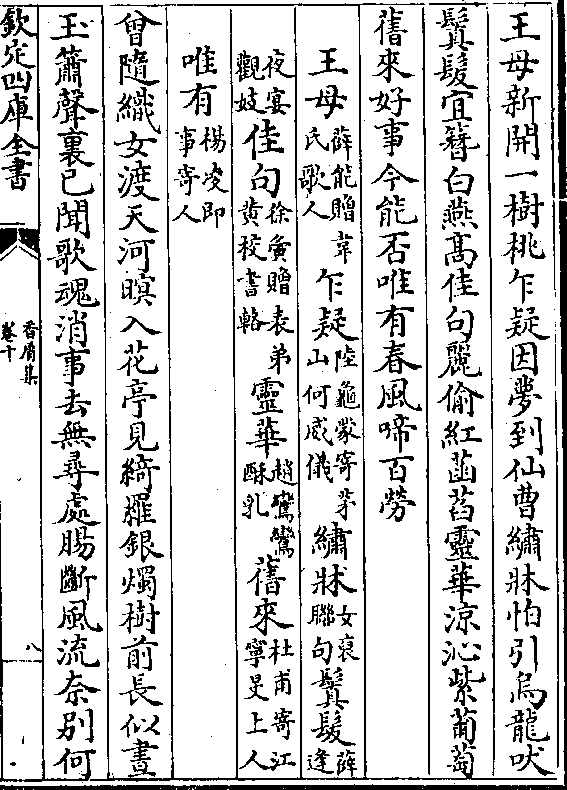 王母新開一樹桃乍疑因夢到仙曹繡牀怕引烏龍吠
鬒髮宜簪白燕高佳句麗偷紅菡萏靈華涼沁紫葡萄
舊來好事今能否唯有春風啼百勞
王母薛能贈韋氏歌人乍疑陸龜蒙寄茅山何威儀繡牀女裒聯句鬒髮薛逢
夜宴觀妓佳句徐夤贈表弟黃校書輅靈華趙鸞鸞酥乳舊來杜甫寄江寧旻上人
唯有楊凌即事寄人
曾隨織女渡天河暝入花亭見綺羅銀燭樹前長似晝
玉簫聲裏已聞歌魂消事去無尋處腸斷風流奈別何
欽定四庫全書
香屑集
卷十
八